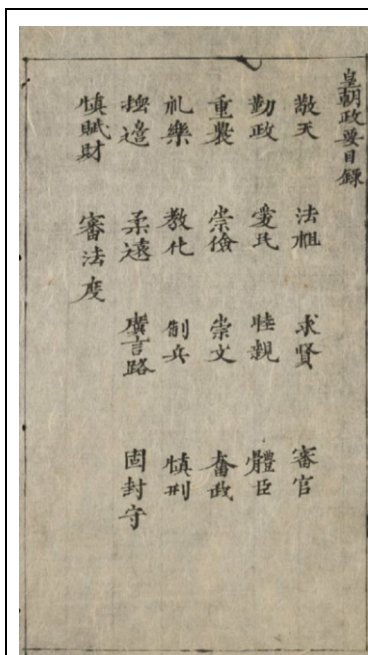 皇朝政要目錄
敬天 法祖 求賢 審官
勤政 愛民 睦親 體臣
重農 崇儉 崇文 奮武
礼樂 教化 制兵 慎刑
撫邊 柔遠 廣言路 固封守
慎賦財 審法度